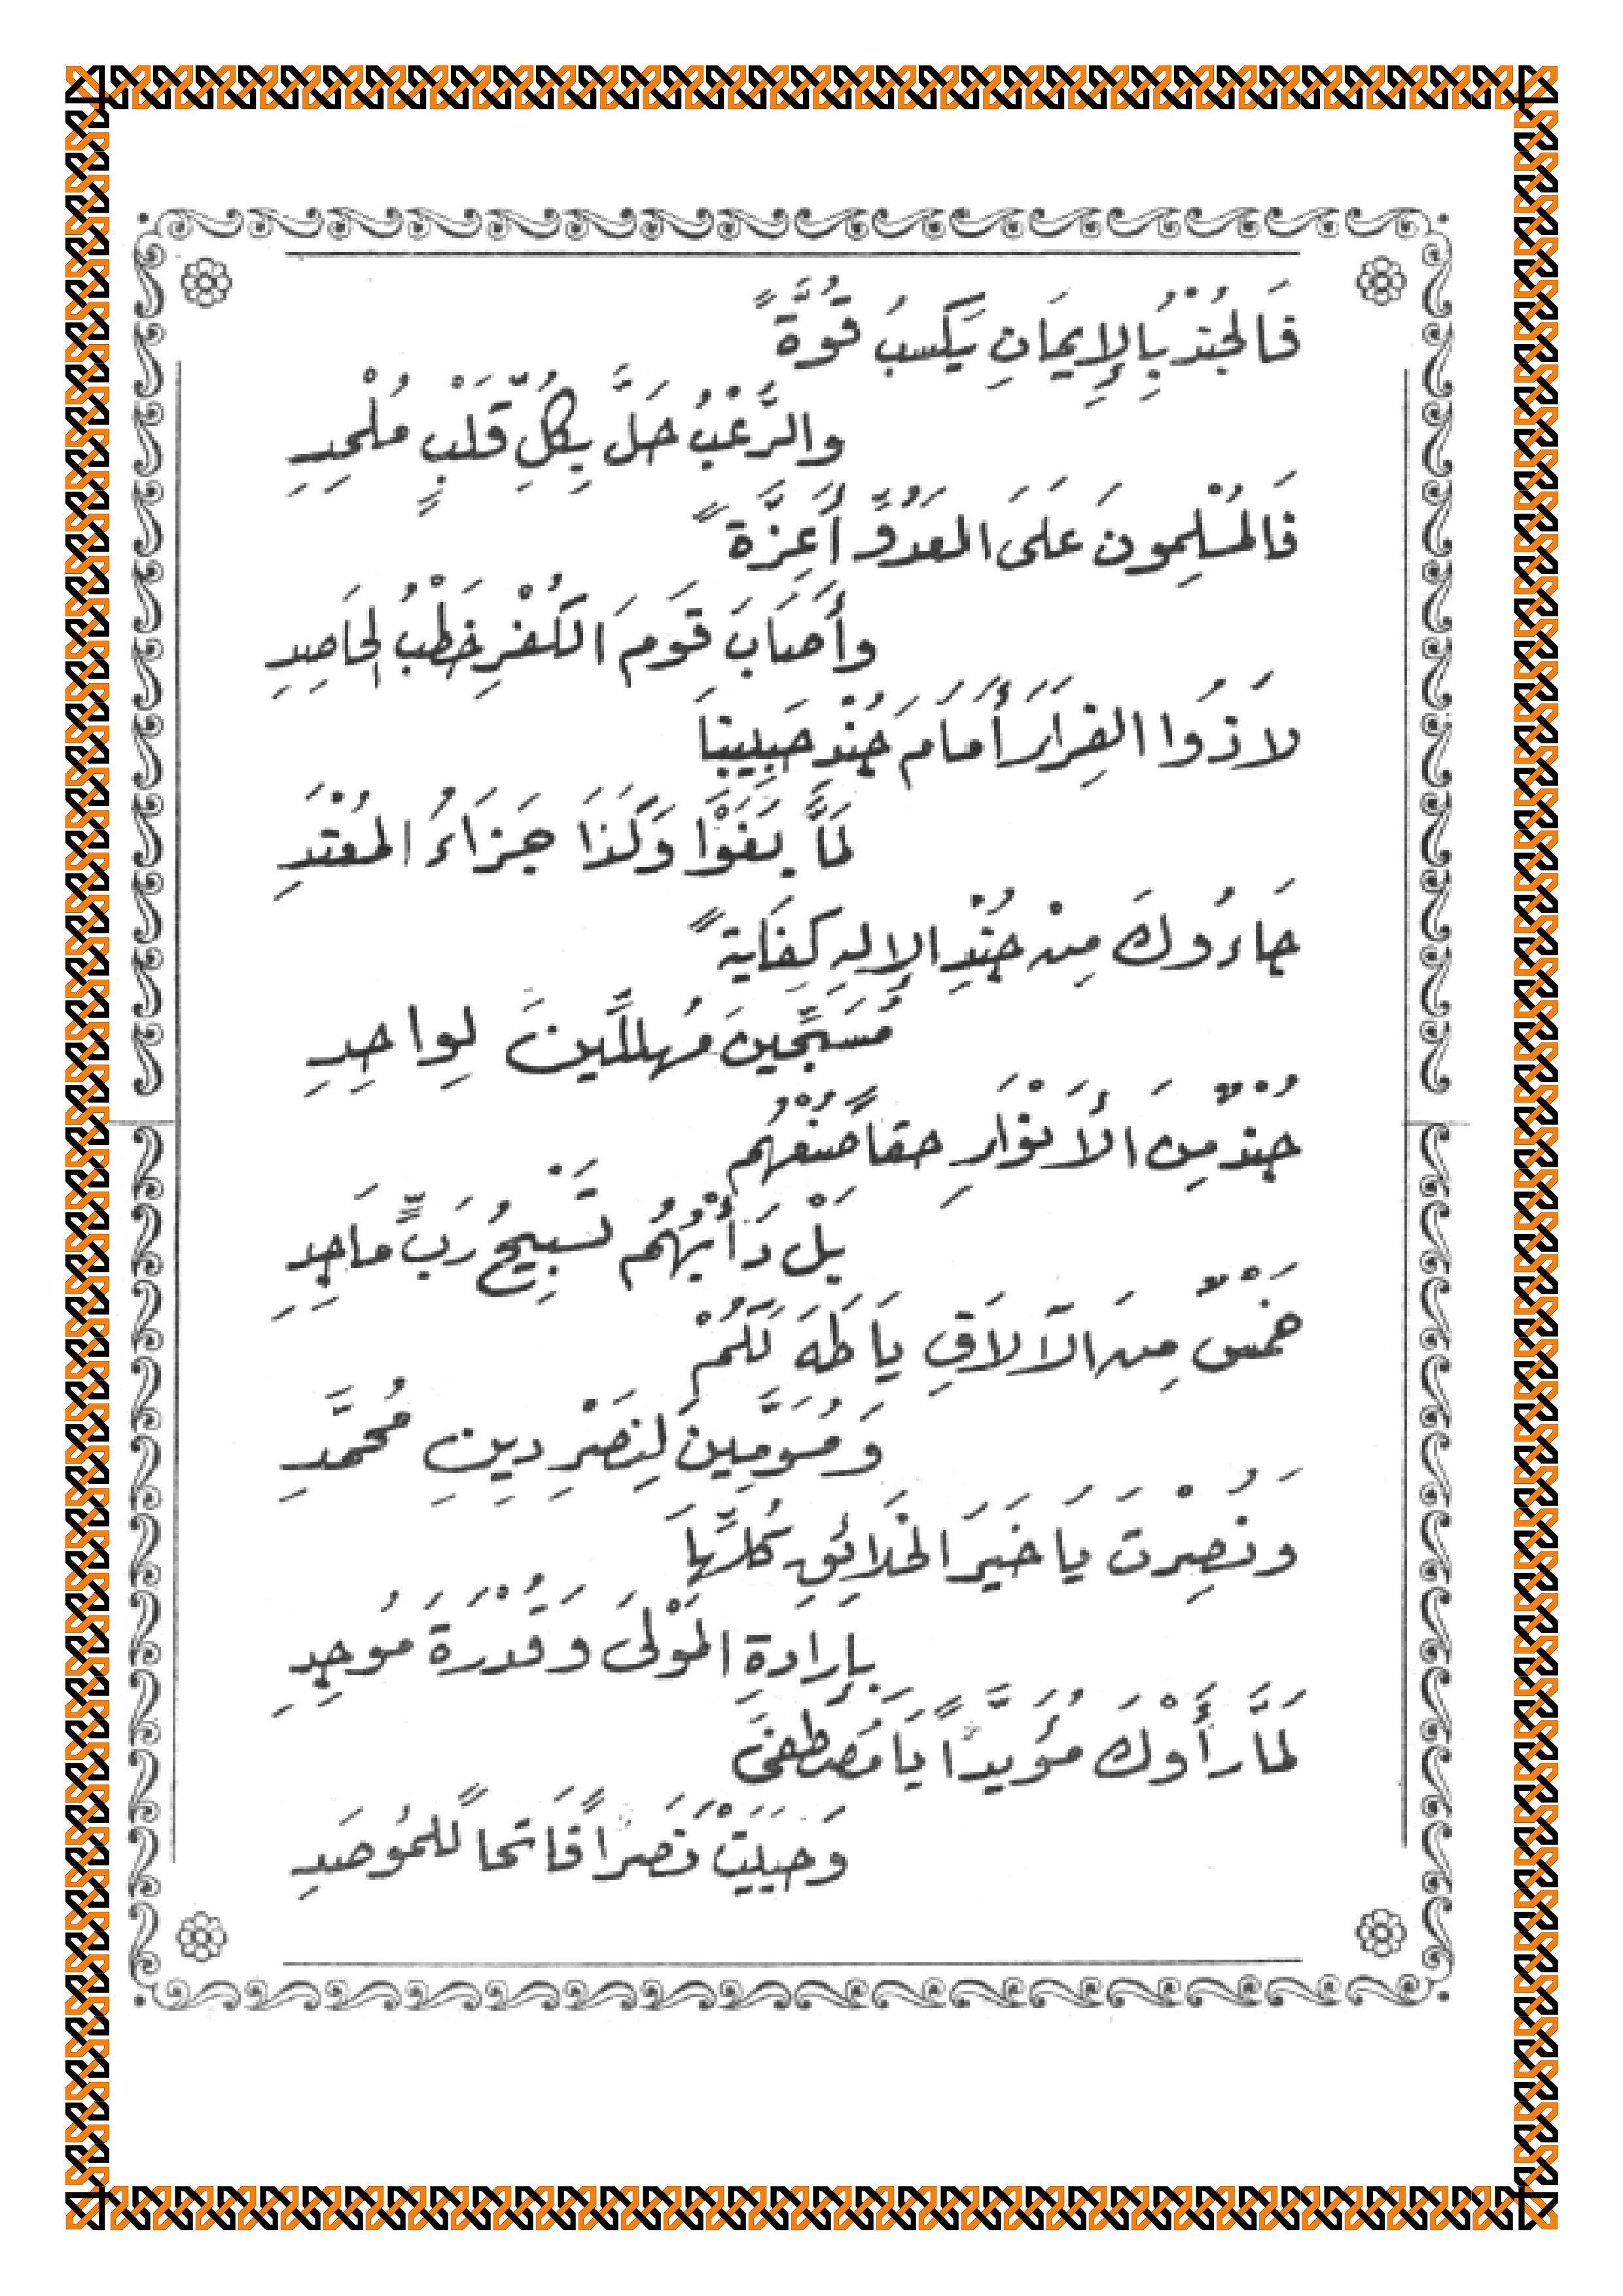 فَالجُنْدُ بِالإِيمَانِ يَكسبُ قُوَّةً
والرُّعْبُ حَلَّ بِكُلِّ قَلْبٍ مُلْحِدِ
فَالمُسْلِمونَ عَلَى العَدُوِّ أَعِزَّةً
وأَصَابَ قَومَ الكُفْرِ خَطْبُ الحَاصِدِ
لاَذُوا الفِرَارَ أَمَامَ جُنْدِ حَبِيبِنَا
لَمَّا بَغَوْا وَكَذَا جَزَاءُ المُعْتَدِ
جَاءُوكَ مِنْ جُنْدِ الإِلهِ كِفَايَةً
مُسَبِّحِينَ مُهلِّلينَ لِواحِدِ
جُنْدٌ مِّنَ الأَنْوَارِ حقاً صُنْعُهُم
بَلْ دَأْبُهُم تَسْبِيحُ رَبٍّ مَاجِدِ
خَمْسٌ مِنَ الآلاَفِ يَا طَهَ لَكُمْ
وَمُسَوَّمِينَ لِنَصْرِ دِينِ مُحمَّدِ
وَنُصِرْتَ يَا خَيرَ الخَلائِقِ كُلِّهَا
بِإِرَادةِ المَوْلَى وَقُدْرَةَ مُوجِدِ
لَمَّا رَأَوْكَ مُؤَيَّدًا يَا مُصْطَفَى
وَحَيَيْتَ نَصْراً فَاتحاً للمُوصَدِ